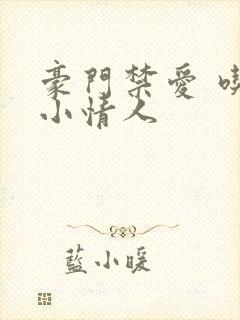 豪門禁愛
小情人
藍小暖